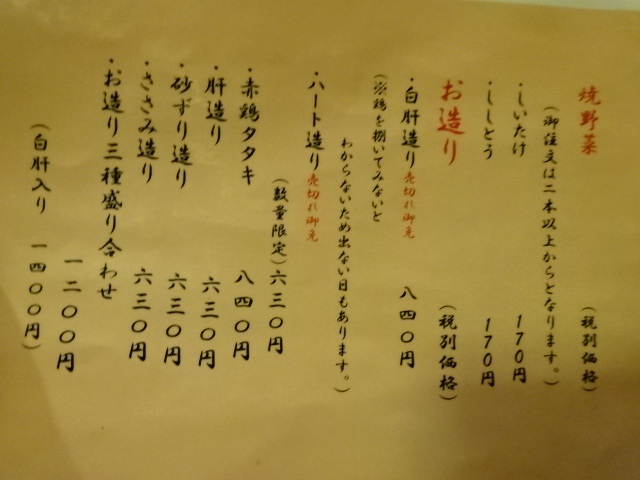 焼野菜 (税別価格)
(御注文は二本以上からとなります。)
・しいたけ 170円
・ししとう 170円
お造り (税別価格)
・白肝造り 売切れ御免 八四〇円
(※鶏を捌いてみないと
わからないため出ない日もあります。)
・ハート造り 売切れ御免
(数量限定) 六三〇円
・赤鶏タタキ 八四〇円
・肝造り 六三〇円
・砂ずり造り 六三〇円
・ささみ造り 六三〇円
・お造り三種盛り合わせ
一二〇〇円
(白肝入り 一四〇〇円)